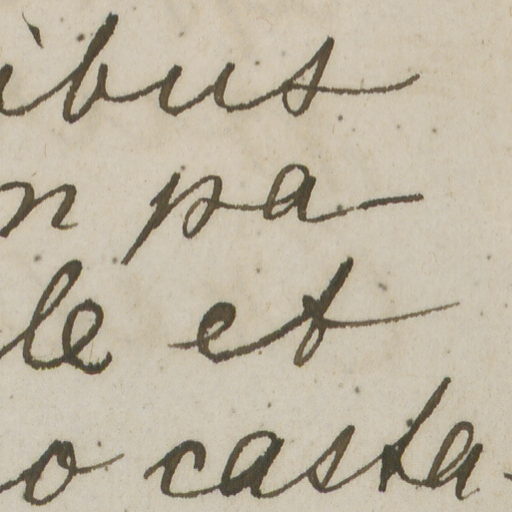 ibus
n pa-
le et
o casta-